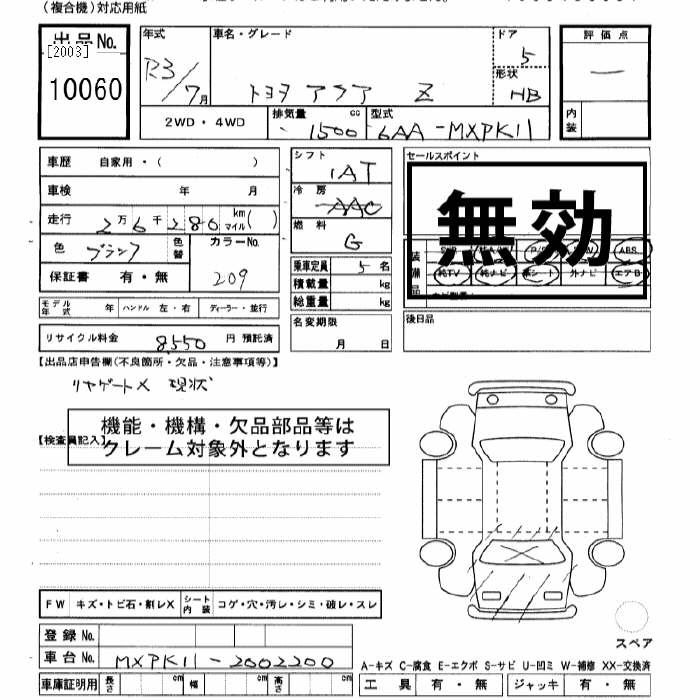 (複合機)対応用紙
出品No.
[2003]
10060
年式
R3/7月
車名・グレード
トヨタ アクア Z
ドア
5
形状
HB
評価点
内装
2WD・4WD
排気量 1500 cc
型式 6AA-MXPK11
車歴 自家用・( )
車検 年 月
走行 2万6千280 km マイル( )
色 ブラック 色替
カラーNo. 209
保証書 有・無
モデル年式 年 ハンドル 左・右 ディーラー・並行
リサイクル料金 8550 円 預託済
シフト
IAT
冷房
AAC
燃料
G
乗車定員 5 名
積載量 kg
総重量 kg
名変期限
月 日
セールスポイント
無効
ABS
純TV 純ナビ 革シート 外ナビ エアB
後日品
【出品店申告欄(不良箇所・欠品・注意事項等)】
リヤゲートX 現状
機能・機構・欠品部品等は
クレーム対象外となります
【検査員記入】
FW キズ・トビ石・割レX シート内装 コゲ・穴・汚レ・シミ・破レ・スレ
登録No.
車台No. MXPK11-2002200
車庫証明用 長さ cm 幅 cm 高さ cm
スペア
A-キズ C-腐食 E-エクボ S-サビ U-凹ミ W-補修 XX-交換済
工具 有・無 ジャッキ 有・無